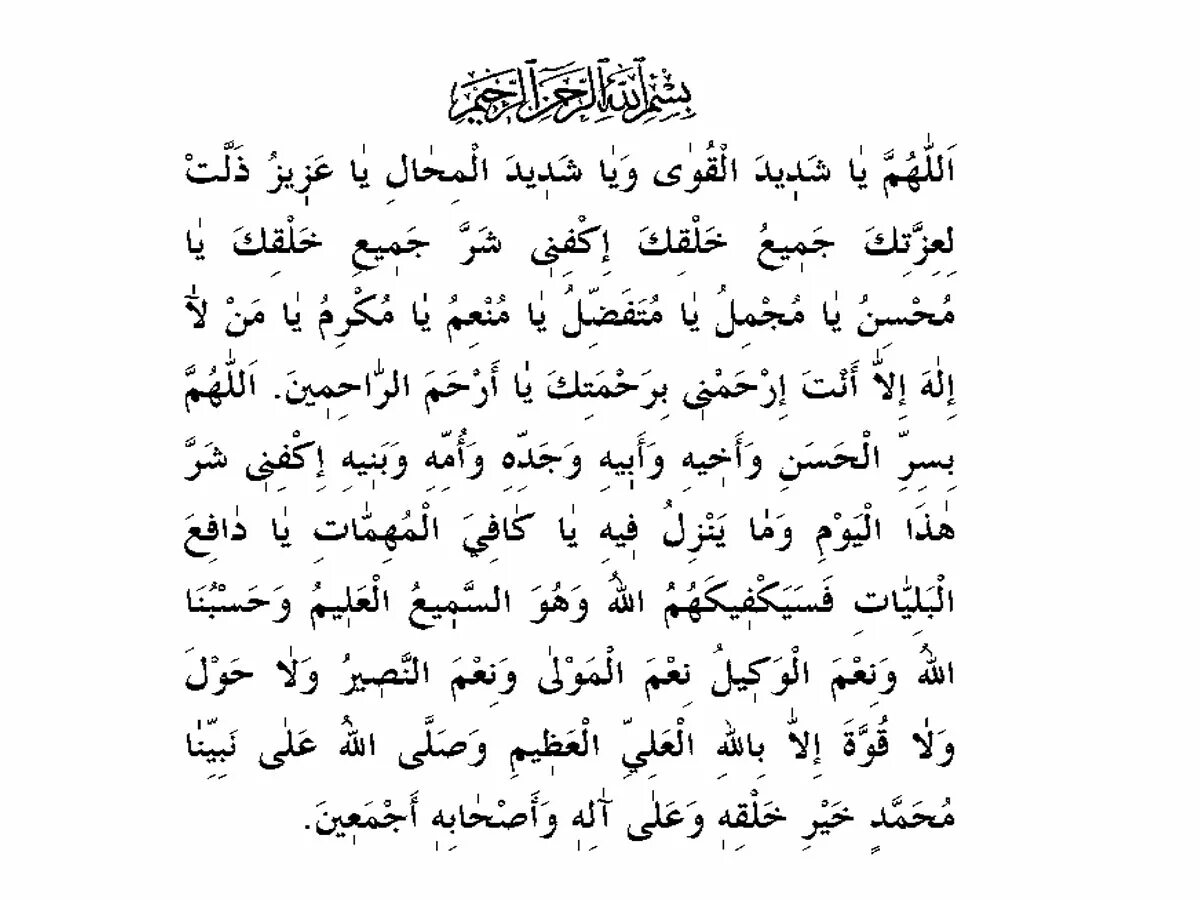 بِسْمِ اللّٰهِ الرَّحْمٰنِ الرَّحِيْمِ
اَللّٰهُمَّ يٰا شَدٖيدَ الْقُوٰى وَيٰا شَدٖيدَ الْمِحٰالِ يٰا عَزٖيزُ ذَلَّتْ
لِعِزَّتِكَ جَمٖيعُ خَلْقِكَ إِكْفِنٖى شَرَّ جَمٖيعِ خَلْقِكَ يٰا
مُحْسِنُ يٰا مُجْمِلُ يٰا مُتَفَضِّلُ يٰا مُنْعِمُ يٰا مُكْرِمُ يٰا مَنْ لآٰ
إِلٰهَ إِلاّٰ أَنْتَ إِرْحَمْنٖى بِرَحْمَتِكَ يٰا أَرْحَمَ الرّٰاحِمٖينَ. اَللّٰهُمَّ
بِسِرِّ الْحَسَنِ وَأَخٖيهِ وَأَبٖيهِ وَجَدِّهِ وَأُمِّهِ وَبَنٖيهِ إِكْفِنٖى شَرَّ
هٰذَا الْيَوْمِ وَمٰا يَنْزِلُ فٖيهِ يٰا كٰافِيَ الْمُهِمّٰاتِ يٰا دٰافِعَ
الْبَلِيّٰاتِ فَسَيَكْفٖيكَهُمُ اللهُ وَهُوَ السَّمٖيعُ الْعَلٖيمُ وَحَسْبُنَا
اللهُ وَنِعْمَ الْوَكٖيلُ نِعْمَ الْمَوْلٰى وَنِعْمَ النَّصٖيرُ وَلٰا حَوْلَ
وَلٰا قُوَّةَ إِلاّٰ بِاللهِ الْعَلِيِّ الْعَظٖيمِ وَصَلَّى اللهُ عَلٰى نَبِيِّنٰا
مُحَمَّدٍ خَيْرِ خَلْقِهٖ وَعَلٰى آٰلِهٖ وَأَصْحٰابِهٖ أَجْمَعٖينَ.